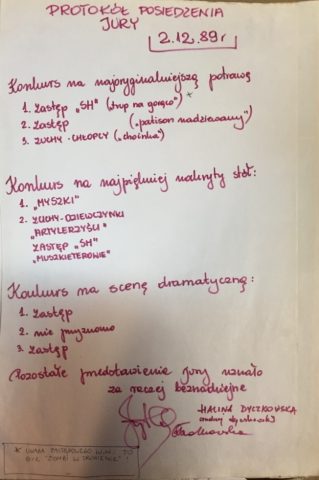 PROTOKÓŁ POSIEDZENIA
JURY
2.12.89r
Konkurs na najoryginalniejszą potrawę
1. Zastęp „SH" (trup na gorąco) *
2. Zastęp („patison nadziewany")
3. ZUCHY - CHŁOPCY („choinka")
Konkurs na najpiękniej nakryty stół:
1. „MYSZKI"
2. ZUCHY - DZIEWCZYNKI
„ARTYLERZYŚCI"
ZASTĘP „SH"
„MUSZKIETEROWIE"
Konkurs na scenę dramatyczną:
1. Zastęp
2. nie przyznano
3. Zastęp
Pozostałe przedstawienia jury uznało
za raczej beznadziejne
HALINA DYCZKOWSKA
* UWAGA ZASTĘPOWEGO WINNO TO
BYĆ "ZOMBI W"